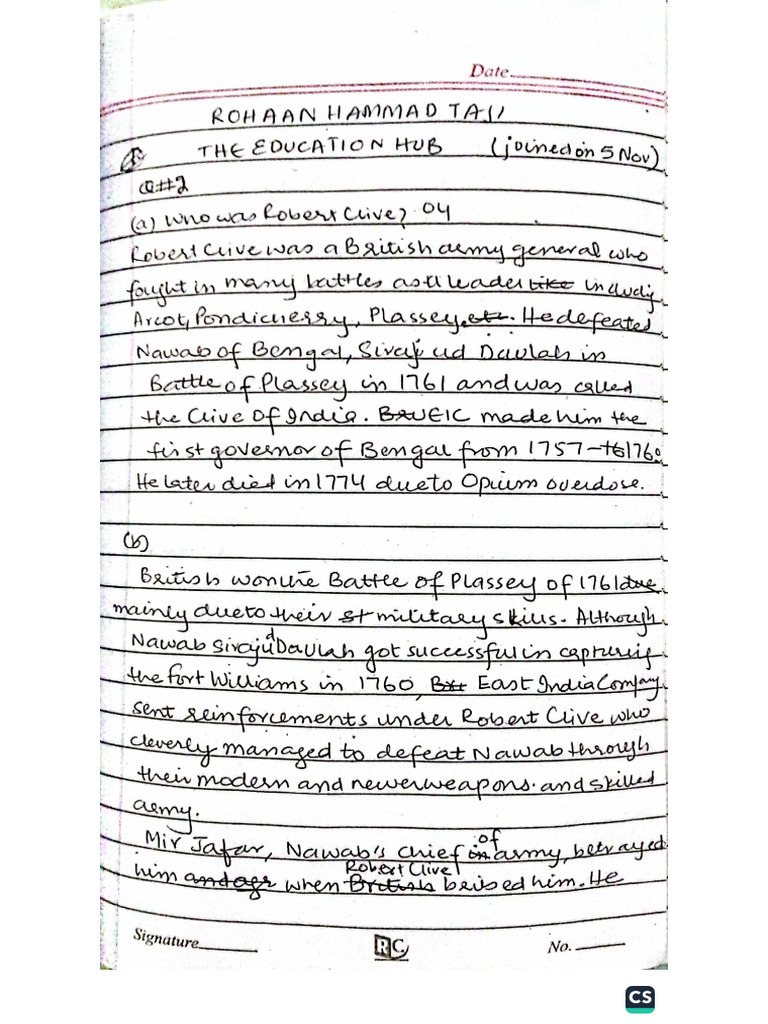 Date
ROHAAN HAMMAD TAJI
THE EDUCATION HUB (joined on 5 Nov)
Q#2
(a) Who was Robert Clive? 04
Robert Clive was a British army general who
fought in many battles as a leader like including
Arcot, Pondicherry, Plassey, etc. He defeated
Nawab of Bengal, Siraj ud Daulah in
Battle of Plassey in 1761 and was called
the Clive of India. EIC made him the
first governor of Bengal from 1757-1760
He later died in 1774 due to Opium overdose.
(b)
British won the Battle of Plassey of 1761 due
mainly due to their st military skills. Although
Nawab Siraj ud Daulah got successful in capturing
the Fort Williams in 1760, But East India Company
sent reinforcements under Robert Clive who
cleverly managed to defeat Nawab through
their modern and newer weapons. and skilled
army.
Mir Jafar, Nawab's chief in of army, betrayed
him and agr when British Robert Clive bribed him. He
Signature
RC
No.
CS